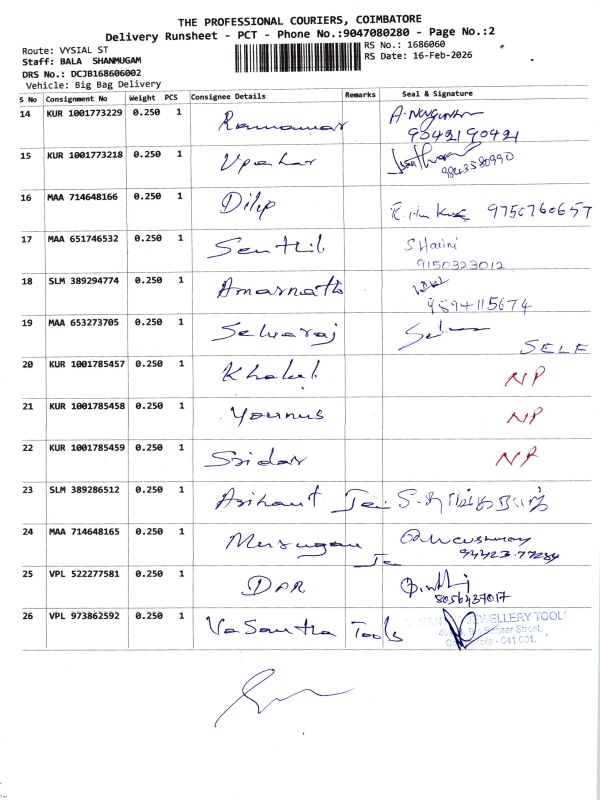 THE PROFESSIONAL COURIERS, COIMBATORE
Delivery Runsheet - PCT - Phone No.:9047080280 - Page No.:2
Route: VYSIAL ST
RS No.: 1686060
Staff: BALA SHANMUGAM
RS Date: 16-Feb-2026
DRS No.: DCJB168606002
Vehicle: Big Bag Delivery
S No Consignment No Weight PCS Consignee Details Remarks Seal & Signature
14 KUR 1001773229 0.250 1 Ramanar
9042190421
15 KUR 1001773218 0.250 1 Upahar
9843580990
16 MAA 714648166 0.250 1 Dilip 9750760657
17 MAA 651746532 0.250 1 Senthil S Harini
9150323012
18 SLM 389294774 0.250 1 Amarnath
9894115674
19 MAA 653273705 0.250 1 Selvaraj
SELF
20 KUR 1001785457 0.250 1 Khalul NP
21 KUR 1001785458 0.250 1 Younus NP
22 KUR 1001785459 0.250 1 Sridar NP
23 SLM 389286512 0.250 1 Arihant Jai
24 MAA 714648165 0.250 1 Murugan
94423.77284
25 VPL 522277581 0.250 1 DAR
8056437017
26 VPL 973862592 0.250 1 Vasantha Tools
JEWELLERY TOOLS
Bazaar Street,
641 001.